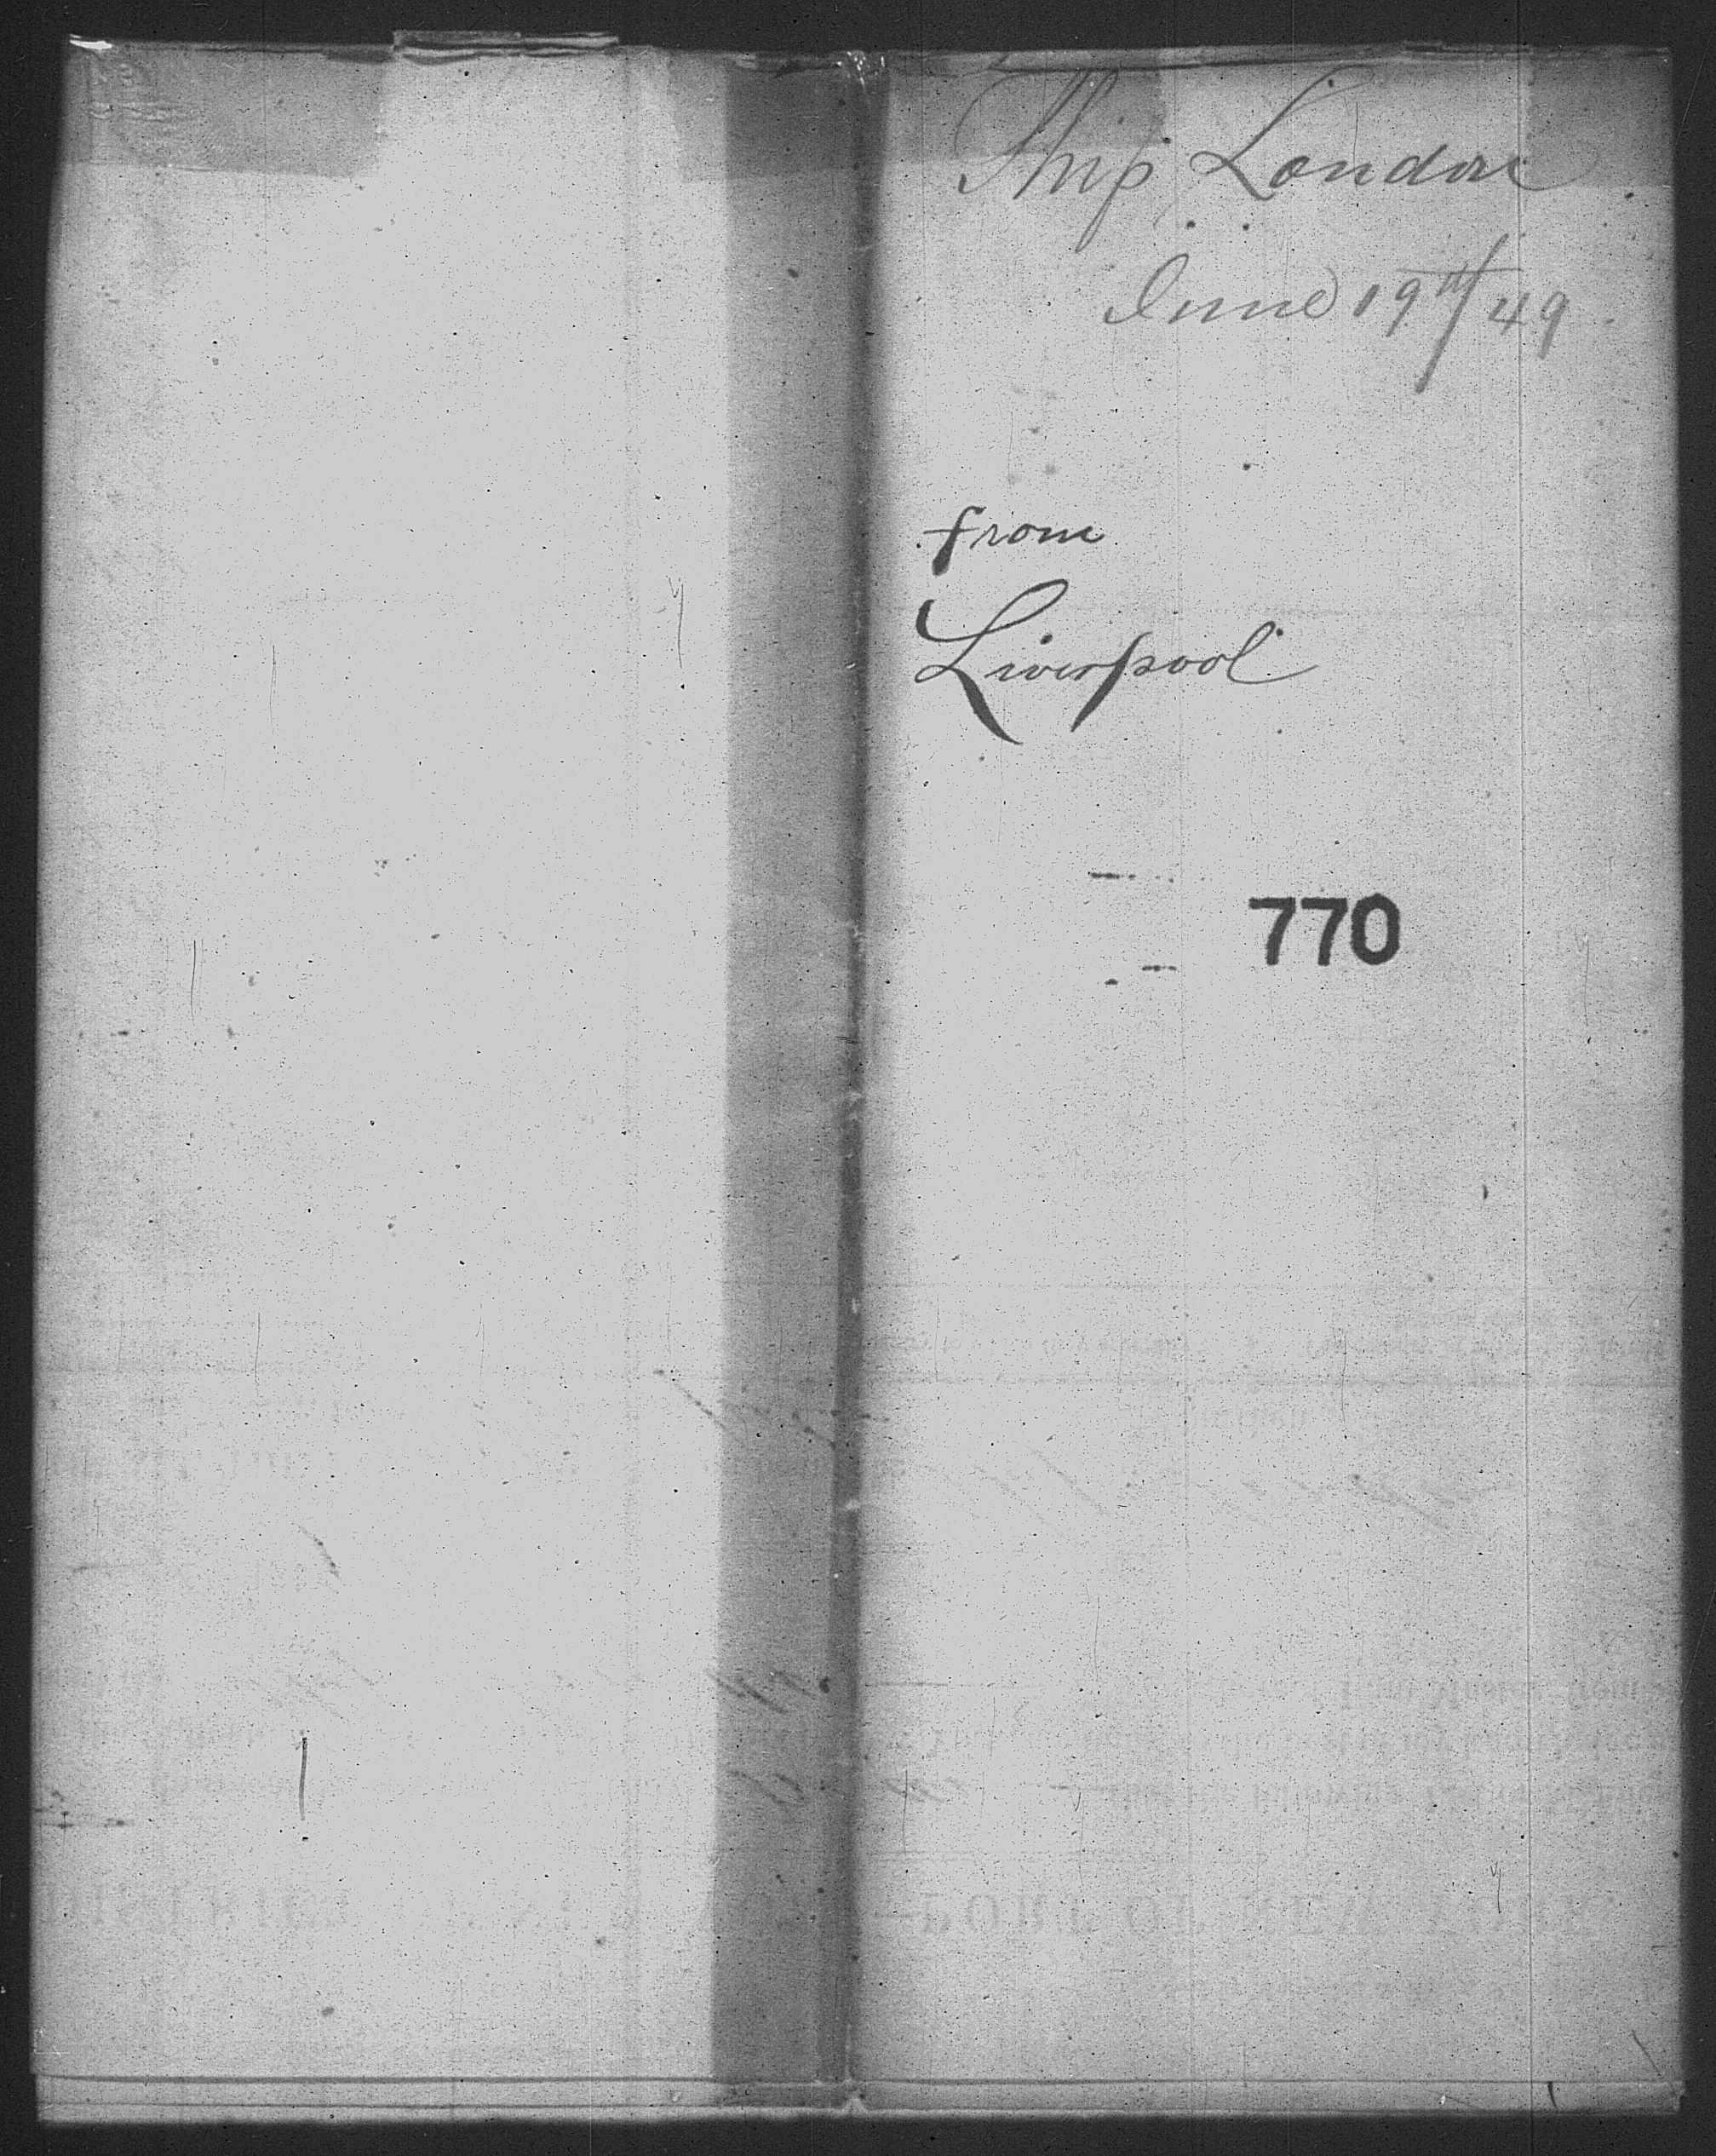 Ship London
June 19th/49
from
Liverpool
770